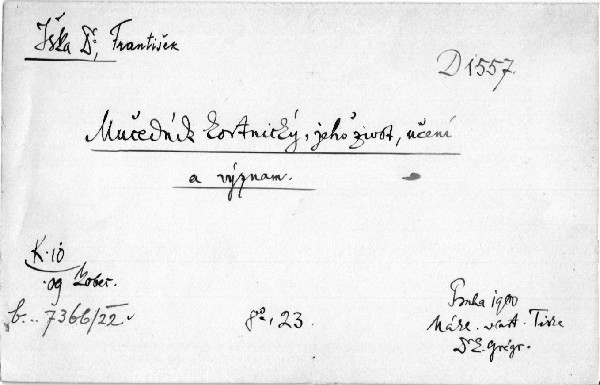 Iška Dr, František
D 1557
Mučedník kostnický, jeho život, učení
a význam.
K.10
09 Lober.
b... 7366/22.
8o, 23.
Praha 1900
Nákl. vlast. Tisk
Dr E. Grégr.